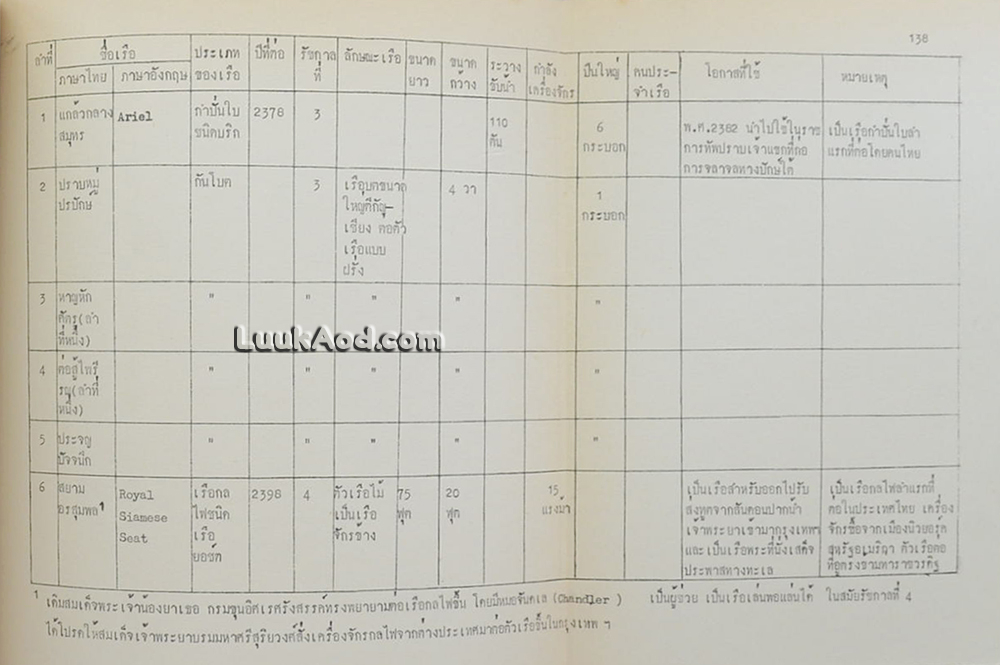 138
ลำที่ ชื่อเรือ ประเภท ปีที่ต่อ รัชกาล ลักษณะเรือ ขนาด ขนาด ระวาง กำลัง ปืนใหญ่ คนประ- โอกาสที่ใช้ หมายเหตุ
ภาษาไทย ภาษาอังกฤษ ของเรือ ที่ ยาว กว้าง ขับน้ำ เครื่องจักร จำเรือ
1 แกล้วกลาง Ariel กำปั่นใบ 2378 3 110 6 พ.ศ.2382 นำไปใช้ในราช เป็นเรือกำปั่นใบลำ
สมุทร ชนิดบริก ตัน กระบอก การทัพปราบเจ้าแขกที่ก่อ แรกที่ต่อโดยคนไทย
การจลาจลทางปักษ์ใต้
2 ปราบหมู่ กันโบต 3 เรือบตขนาด 4 วา 1
ปรปักษ์ ใหญ่ตีกัญ- กระบอก
เชียง ต่อตัว
เรือแบบ
ฝรั่ง
3 หาญหัก " " " " "
ศัตรู(ลำ
ที่หนึ่ง)
LuukAod.com
4 ต่อสู้ไพรี " " " " "
รณ(ลำที่
หนึ่ง)
5 ประจญ " " " " "
ปัจจนึก
6 สยาม Royal เรือกล 2398 4 ตัวเรือไม้ 75 20 15 เป็นเรือสำหรับออกไปรับ เป็นเรือกลไฟลำแรกที่
อรสุมพล¹ Siamese ไฟชนิด เป็นเรือ ฟุต ฟุต แรงม้า ส่งทูตจากสันดอนปากน้ำ ต่อในประเทศไทย เครื่อง
Seat เรือ จักรข้าง เจ้าพระยาเข้ามากรุงเทพฯ จักรซื้อจากเมืองนิวยอร์ค
ยอชต์ และเป็นเรือพระที่นั่งเสด็จ สหรัฐอเมริกา ตัวเรือต่อ
ประพาสทางทะเล ที่อู่ตรงข้ามหาราชวรดิฐ
¹ เดิมสมเด็จพระเจ้าน้องยาเธอ กรมขุนอิศเรศรังสรรค์ทรงพยายามต่อเรือกลไฟขึ้น โดยมีหมอจันดเล (Chandler) เป็นผู้ช่วย เป็นเรือเล่นพอแล่นได้ ในสมัยรัชกาลที่ 4
ได้โปรดให้สมเด็จเจ้าพระยาบรมมหาศรีสุริยวงศ์สั่งเครื่องจักรกลไฟจากต่างประเทศมาต่อตัวเรือขึ้นในกรุงเทพ ฯ